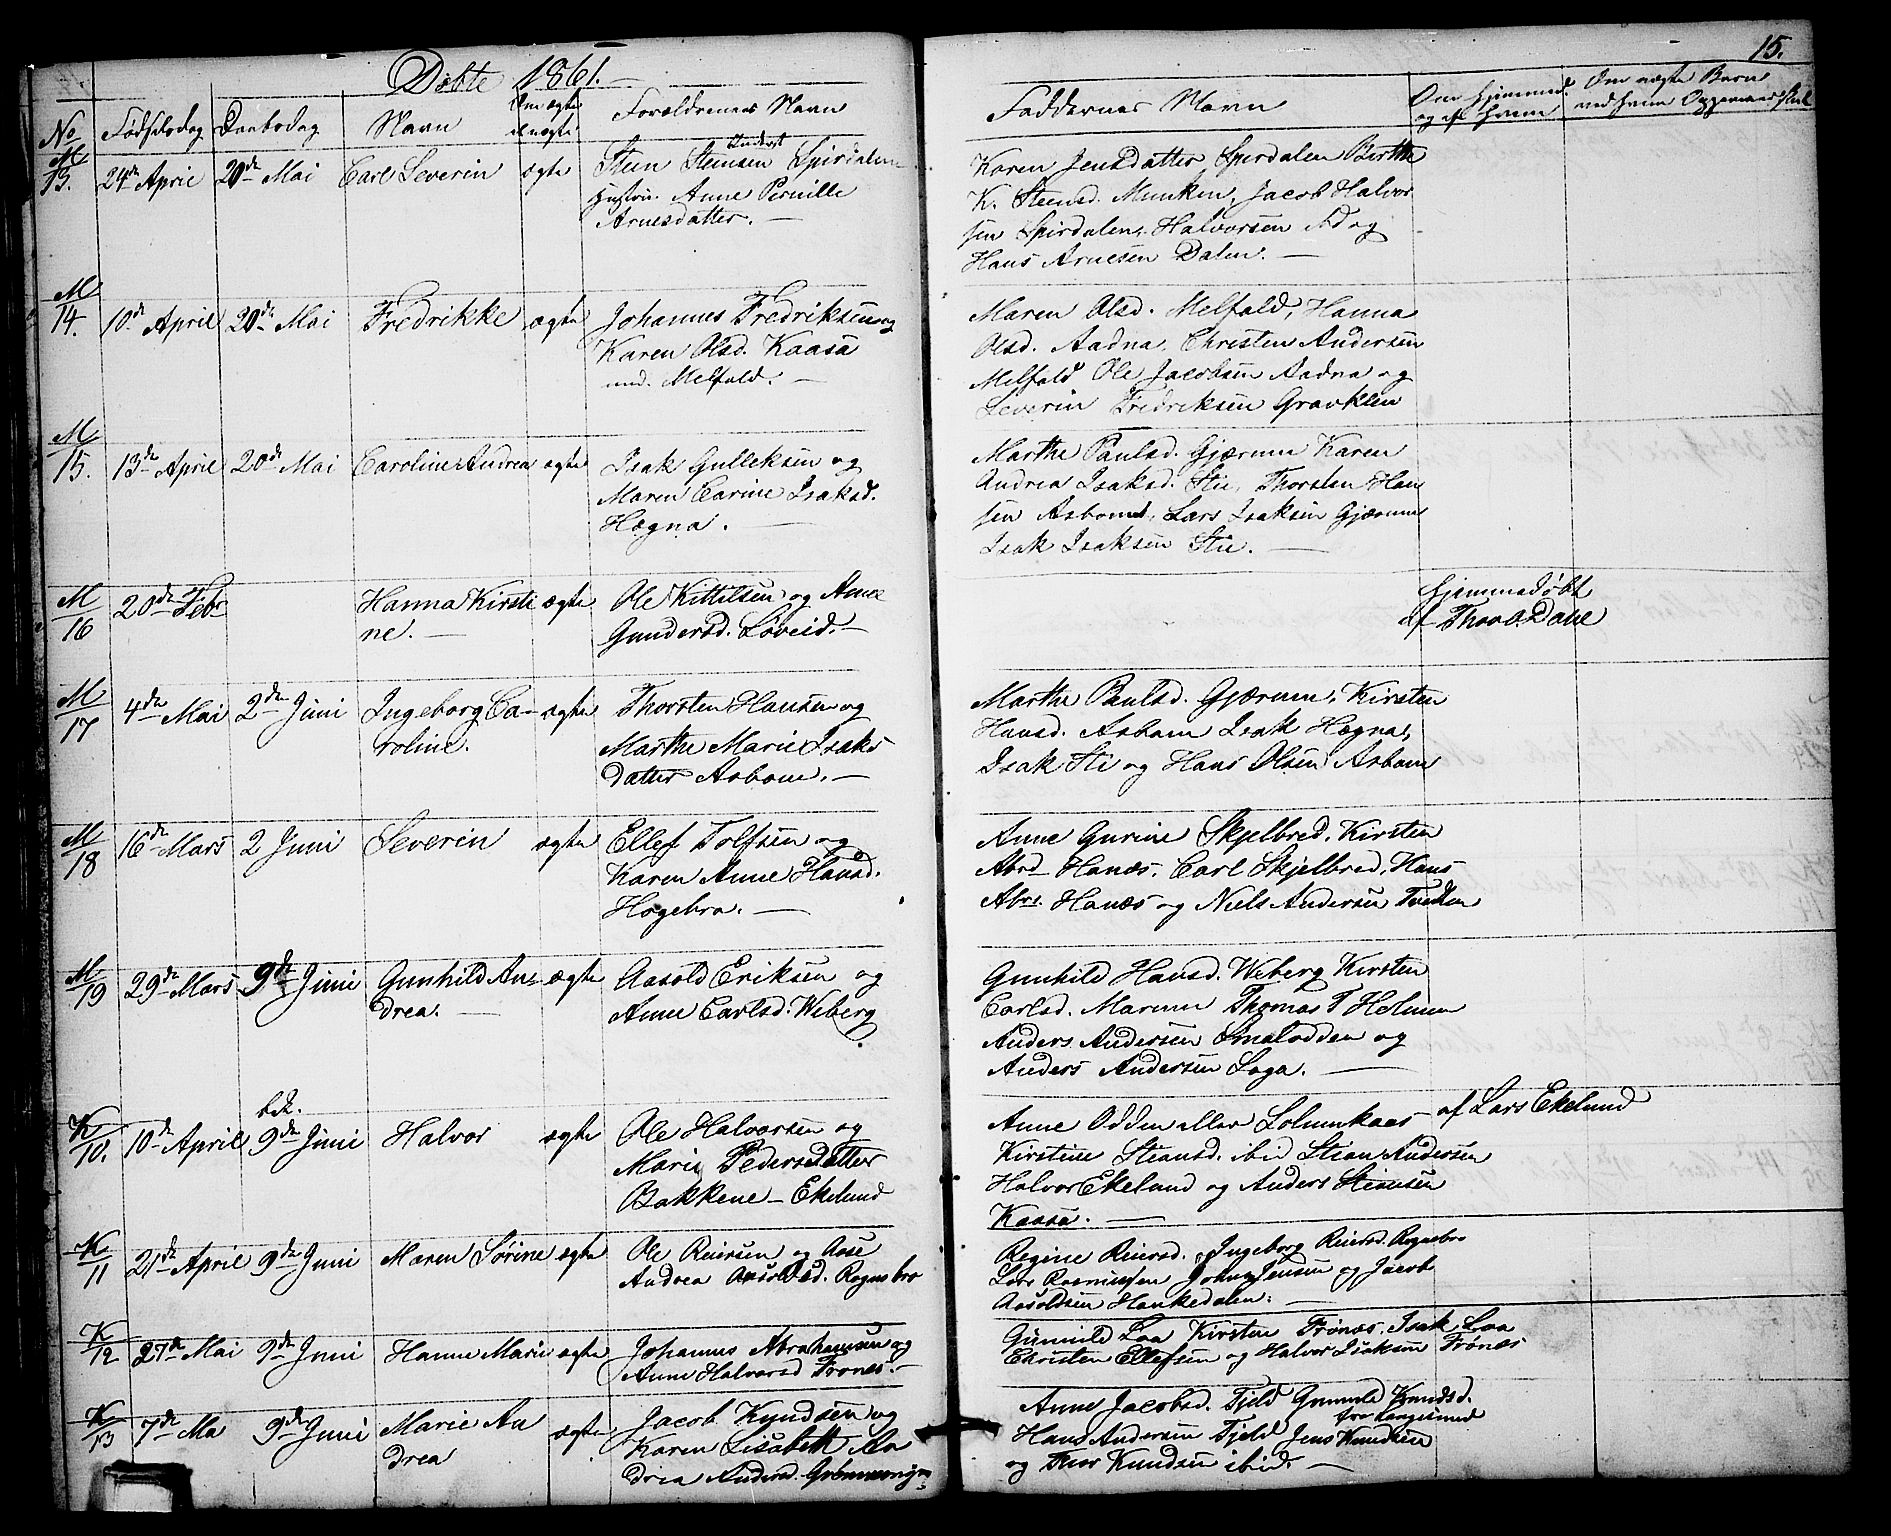 Döbte 1861.
15.
No Födselsdag Daabsdag Navn Om ægte el. uægte Forældrenes Navn
Faddernes Navn Om hjemmed. og af hvem Om uægte Barn
M 13. 24de April 20de Mai Carl Severin ægte Steen Steensen Spirdalen
Hustru. Anne Pernille
Arnesdatter. —
Karen Jensdatter Spirdalen Birthe
K. Steensd. Munken, Jacob Halvor
sen Spirdalen, Halvorsen og
Hans Arnesen Dalen. —
M 14. 10de April 20de Mai Fredrikke ægte Johannes Fredriksen og
Karen Olsd. Kaasa
und. Melfald. —
Maren Olsd. Melfald, Hanna
Olsd. Aadna, Christen Andersen
Melfald Ole Jacobsen Aadna og
Severin Fredriksen Gravklev
M 15. 13de April 20de Mai Caroline Andrea ægte Isak Gulleksen og
Maren Carine Isaksd.
Hægna. —
Marthe Paulsd. Gjærum Karen
Andrea Isaksd. Stie, Thorsten Han
sen Asbom, Lars Isaksen Gjærum
Isak Isaksen Stie. —
M 16 20de Febr Hanna Kirsti ægte Ole Kittilsen og Anne
ne. — Gundersd. Løveid. —
hjemmedøbt
af Thor O. Dahl
M 17 4de Mai 2de Juni Ingeborg Ca- ægte Thorsten Hansen og
roline. Marthe Marie Isaks
datter Asbom. —
Marthe Paulsd. Gjærum, Kirsten
Hansd. Asbom Isak Hægna,
Isak Sti og Hans Olsen Asbom
M 18 16de Mars 2 Juni Severin ægte Ellef Tolfsen og
Karen Anne Hansd.
Hogebro. —
Anne Gurine Skjelbred, Kirsten
Abrd Hanæs, Carl Skjelbred, Hans
Abrs. Hanæs og Niels Andersen Tvedten
M 19 29de Mars 9de Juni Gunhild An- ægte Aasold Eriksen og
drea. — Anne Carlsd. Weberg
Gunhild Hansd. Weberg Kirsten
Carlsd. Marum Thomas T Holmen
Anders Andersen Smalodden og
Anders Andersen Laga. —
bek.
K 10. 10de April 9de Juni Halvor ægte Ole Halvorsen og
Marie Pedersdatter
Bakkene — Ekelund
Anne Odden eller Kaas af Lars Ekelund
Kirstine Steansd. ibid Stian Andersen
Halvor Ekelund og Anders Steensen
Kaasa. —
K 11 21de April 9de Juni Maren Sörine ægte Ole Reiersen og Aase
Andrea Aasoldsd. Rognsbro
Regine Reiersd. Ingeborg Reiersd. Rognsbro
Lars Rasmussen Johns Jensen og Jacob
Aasoldsen Hankedalen. —
K 12 27de Mai 9de Juni Hanne Marie ægte Johannes Abrahamsen og
Anne Halvorsd Frones. —
Gunnild Laa Kirsten Frönæs. Isak Laa
Christen Ellefsen og Halvor Isaksen Frönæs
K 13 7de Ma 9de Juni Marie An ægte Jacob Kundsen og
drea Karen Lisabeth An
drea Andersd.
Anne Jacobsd. Fjeld Gunnild Knudsd.
fra Langesund
Hans Andersen Fjeld Jens Knudsen
og Thor Knudsen ibid. —